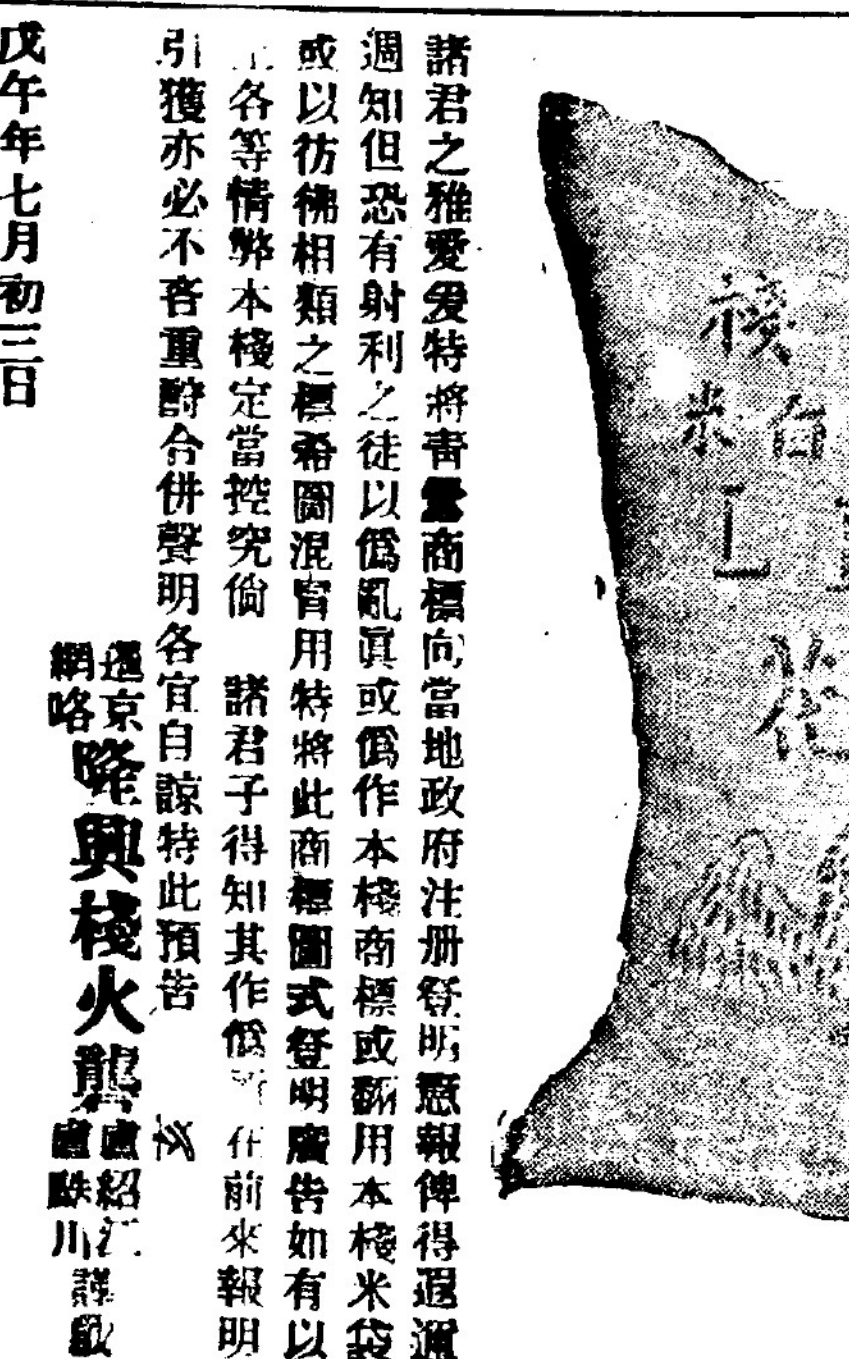 棧
白米
諸君之雅愛爰特將靑商標向當地政府注册登明憲報俾得遐邇
週知但恐有射利之徒以僞亂眞或僞作本棧商標或翻用本棧米袋
或以彷彿相類之標希圖混冒用特將此商標圖式登明廣告如有以
上各等情弊本棧定當控究倘 諸君子得知其作僞 在前來報明
引獲亦必不吝重酧合併聲明各宜自諒特此預告
暹京
網咯
隆興棧火礱
盧紹江
盧
川
謹啟
戊午年七月初三日